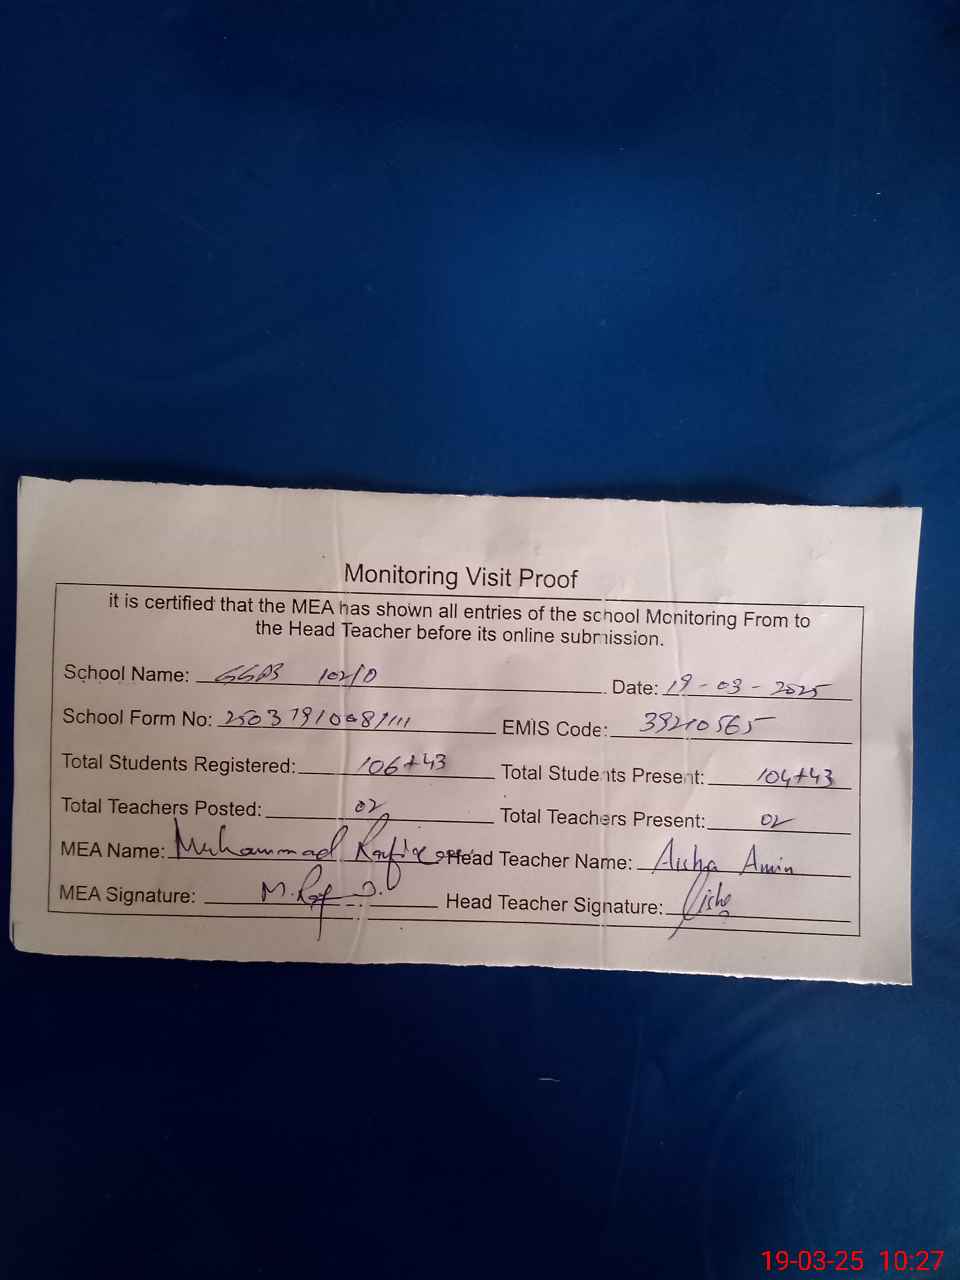 Monitoring Visit Proof
it is certified that the MEA has shown all entries of the school Monitoring From to
the Head Teacher before its online submission.
School Name: 102/D Date: 19-03-2025
School Form No: EMIS Code: 39210565
Total Students Registered: 106+43 Total Students Present: 104+43
Total Teachers Posted: 02 Total Teachers Present: 02
MEA Name: Muhammad Rafiq Head Teacher Name: Aisha Amin
MEA Signature: Head Teacher Signature:
19-03-25 10:27